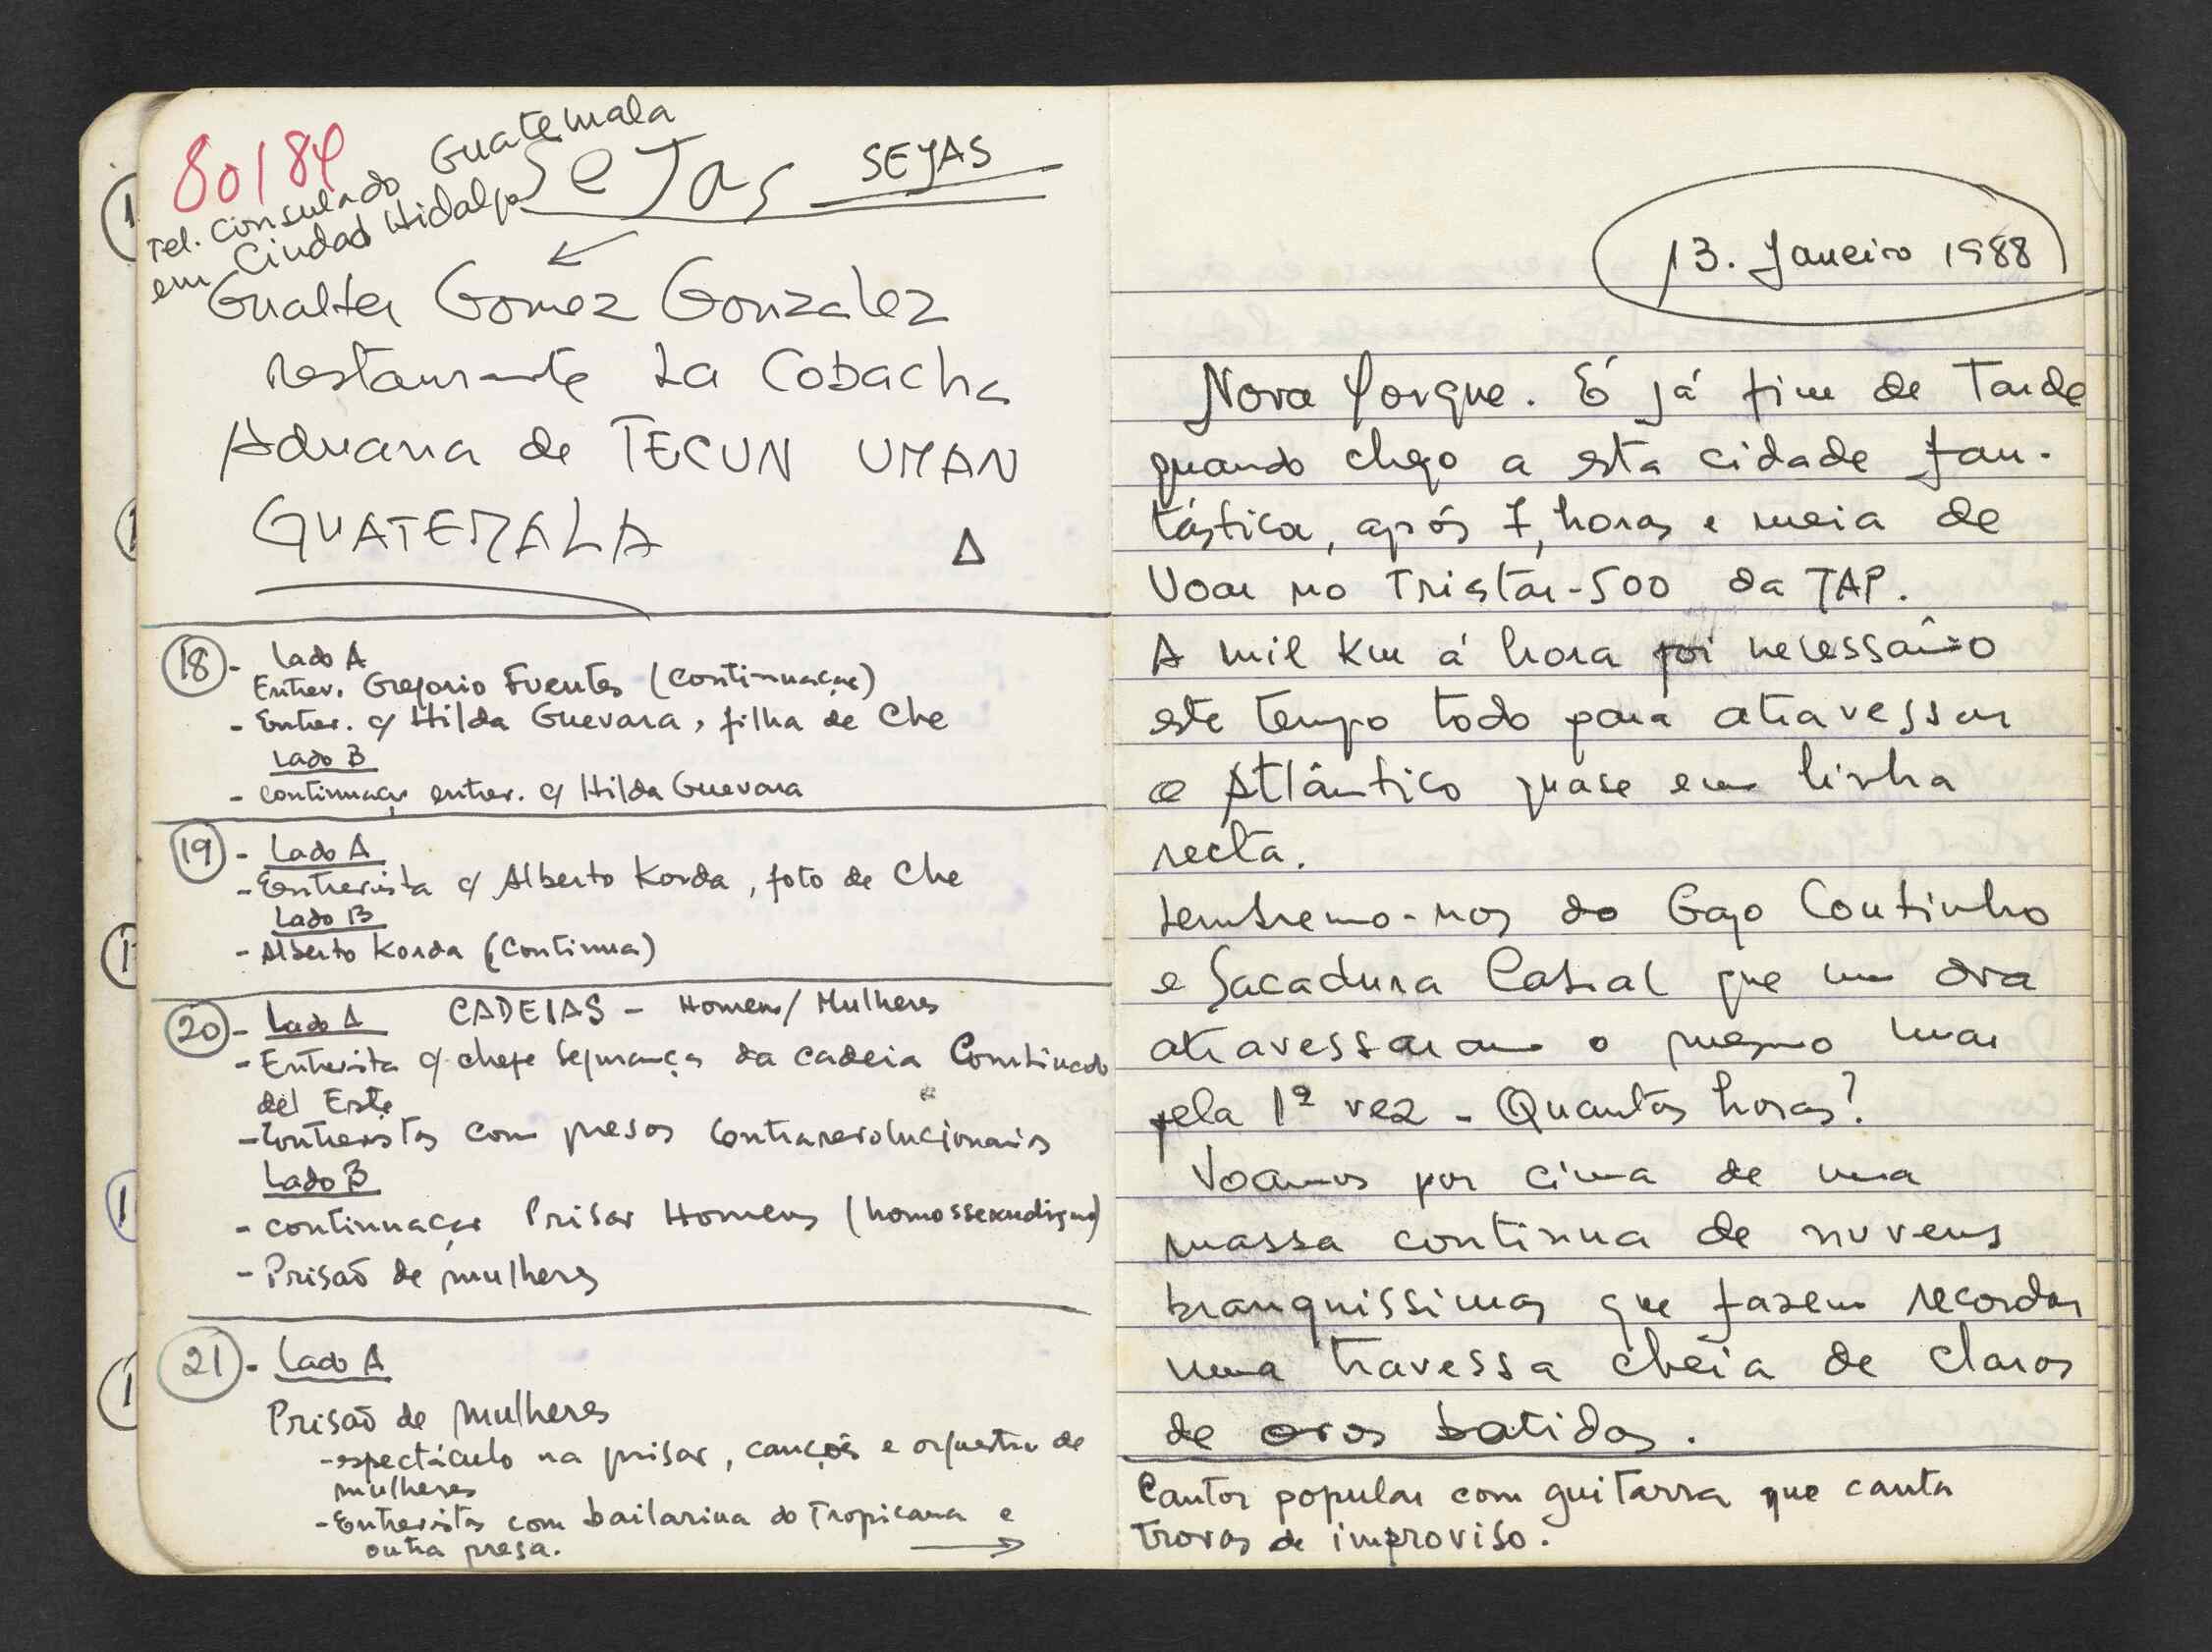 80184
Tel. Consulado Guatemala
em Ciudad Hidalgo
Sejas SEJAS
Gualter Gomez Gonzalez
restaurante La Cobacha
Aduana de TECUN UMAN
GUATEMALA Δ
18 - Lado A
Entrev. Gregorio Fuentes (continuação)
- Entrev. c/ Hilda Guevara, filha de Che
Lado B
- continuaçao entrev. c/ Hilda Guevara
19 - Lado A
- Entrevista c/ Alberto Korda, foto de Che
Lado B
- Alberto Korda (continua)
20 - Lado A CADEIAS - Homens/Mulheres
- Entrevista c/ chefe segurança da cadeia Combinado
del Este
- Entrevistas com presos contrarevolucionarios
Lado B
- continuaçao Prisao Homens (homossexualismo)
- Prisaõ de mulheres
21 - Lado A
Prisaõ de mulheres
- espectáculo na prisao, cançoẽs e orquestra de
mulheres
- Entrevistas com bailarina do Tropicana e
outra presa. →
13. Janeiro 1988
Nova Yorque. É já fim de Tarde
quando chego a esta cidade fan-
tástica, após 7, horas e meia de
Voar no Tristar-500 da TAP.
A mil Km á hora foi necessário
este tempo todo para atravessar
o Atlântico quase em linha
recta.
Lembremo-nos do Gago Coutinho
e Sacadura Cabral que um dia
atravessaram o mesmo mar
pela 1ª vez - Quantas horas?
Voamos por cima de uma
massa continua de nuvens
branquissimas que fazem recordar
uma travessa cheia de claras
de ovos batidas.
Cantor popular com guitarra que canta
trovas de improviso.